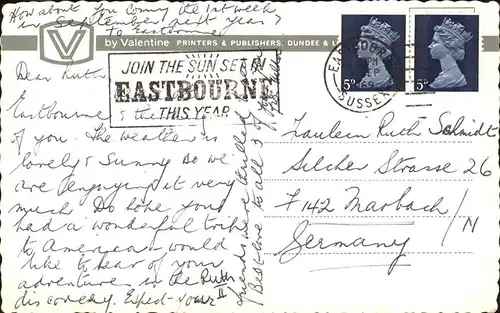 How about you coming the 1st week
in September next year?
to Eastbourne
V
by Valentine PRINTERS & PUBLISHERS, DUNDEE & L
Dear Ruth,
Eastbourne & the
of you. The weather is
lovely & Sunny so we
are enjoying it very
much Do hope you
had a wonderful trip
to America - would
like to hear of your
adventures in the
discovery. Expect your
Ruth II
friends were thrilled
Best love to all 3 of
JOIN THE SUN SET IN
EASTBOURNE
THIS YEAR
EASTBOURNE
SUSSEX
5D
5D
Fräulein Ruth Schmidt
Silcher Strasse 26
F 142 Marbach/N
Germany